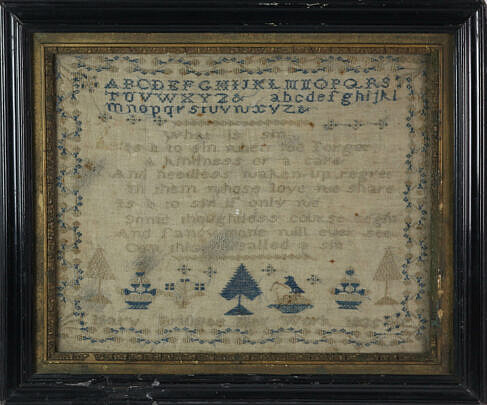 ABCDEFGHIJKLMNOPQRS
TUVWXYZ& abcdefghijkl
mnopqrstuvwxyz&
What is sin
it to sin when we forget
A kindness or a care
And needless waken up regret
In them whose love we share
Is it to sin if only we
Some thoughtless course begin
And fancy none will ever see
Can this be called a sin
Mary Bridges